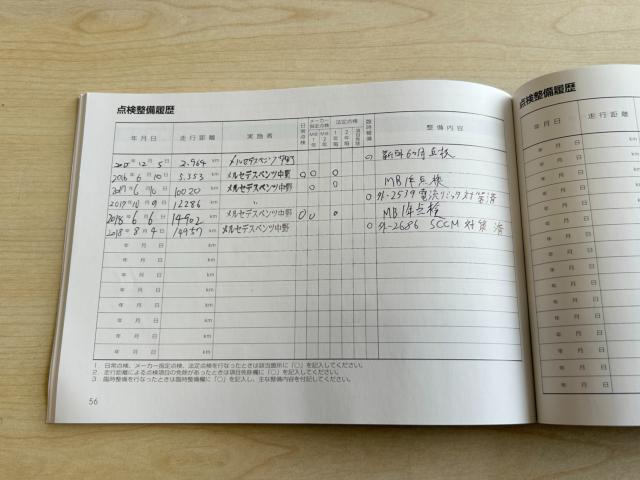 点検整備履歴
年月日 走行距離 実施者 日常点検 メーカー指定点検 MB1年 MB2年 法定点検 1年点検 2年点検 臨時整備 整備内容
2015年12月5日 2,964km メルセデスベンツ中野 ○ 6ヶ月点検
2016年6月10日 5,353km メルセデスベンツ中野 ○ ○ ○
2017年6月10日 10020km メルセデスベンツ中野 ○ ○ MB1年点検
2017年10月9日 12286km 〃 ○ 外-2539 電流リミッタ対策済
2018年6月6日 14902km メルセデスベンツ中野 ○ ○ ○ MB1年点検
2018年8月4日 14957km メルセデスベンツ中野 ○ 外-2686 SCCM対策済
年月日 km
年月日 km
年月日 km
年月日 km
年月日 km
年月日 km
年月日 km
1 日常点検、メーカー指定点検、法定点検を行なったときは該当箇所に「○」を記入してください。
2 走行距離による点検項目の免除があったときは項目免除欄に「○」を記入してください。
3 臨時整備を行なったときは臨時整備欄に「○」を記入し、主な整備内容を付記してください。
56
点検整備履歴
年月日 走行距離
年月日
年月日
年月日
年月日
年月日
年月日
年月日
年月日
年月日
年月日
年月日
年月日
年月日